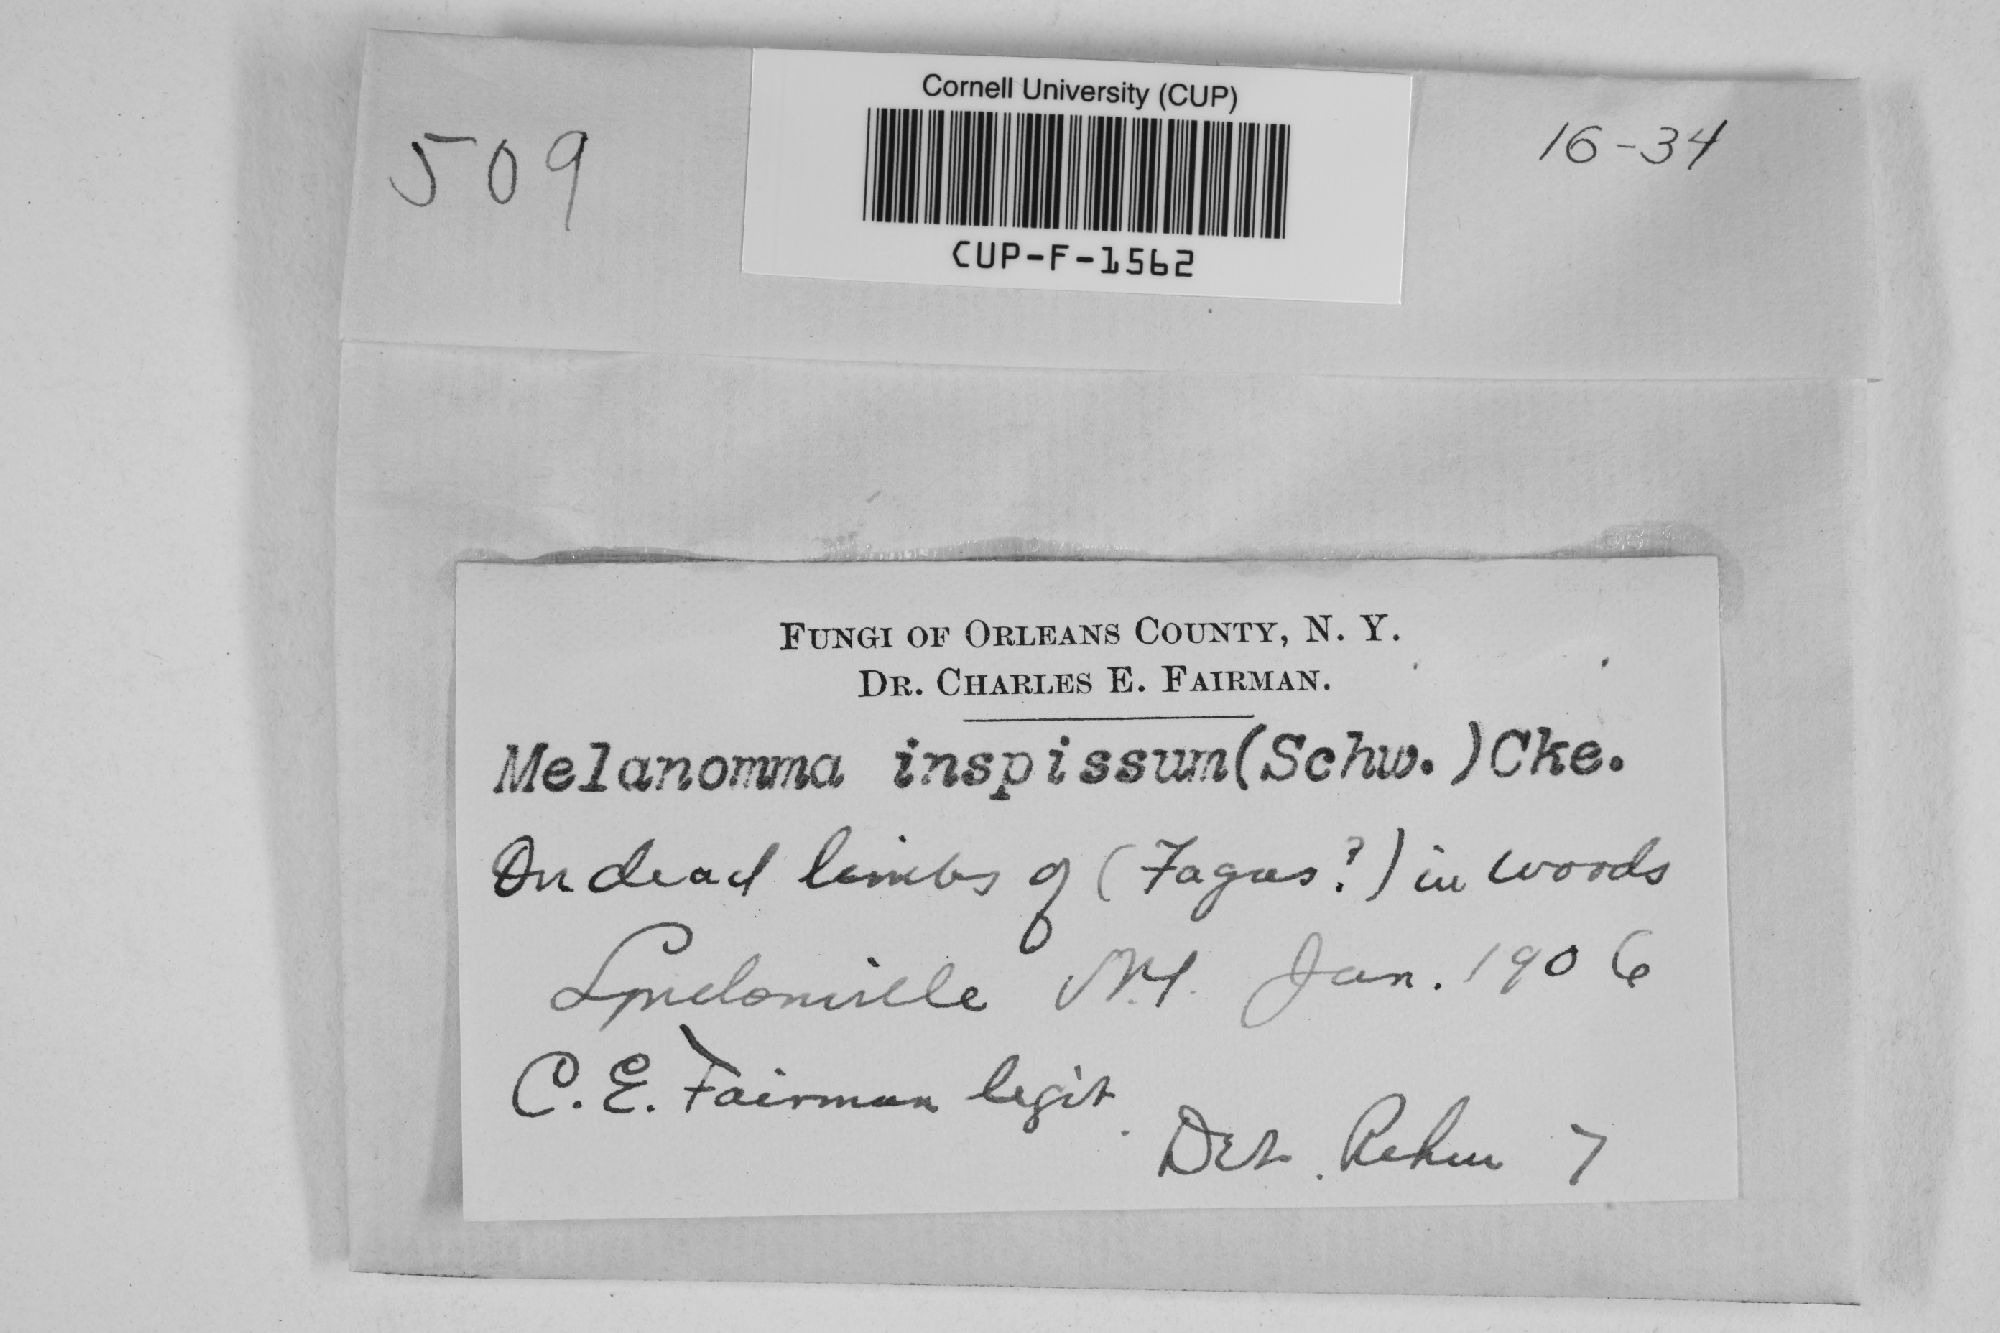 509
Cornell University (CUP)
16-34
CUP-F-1562
FUNGI OF ORLEANS COUNTY, N. Y.
DR. CHARLES E. FAIRMAN.
Melanomma inspissum (Schw.) Cke.
On dead limbs of (Fagus?) in woods
Lyndonville N.Y. Jan. 1906
C. E. Fairman legit.
Det. Rehm 7